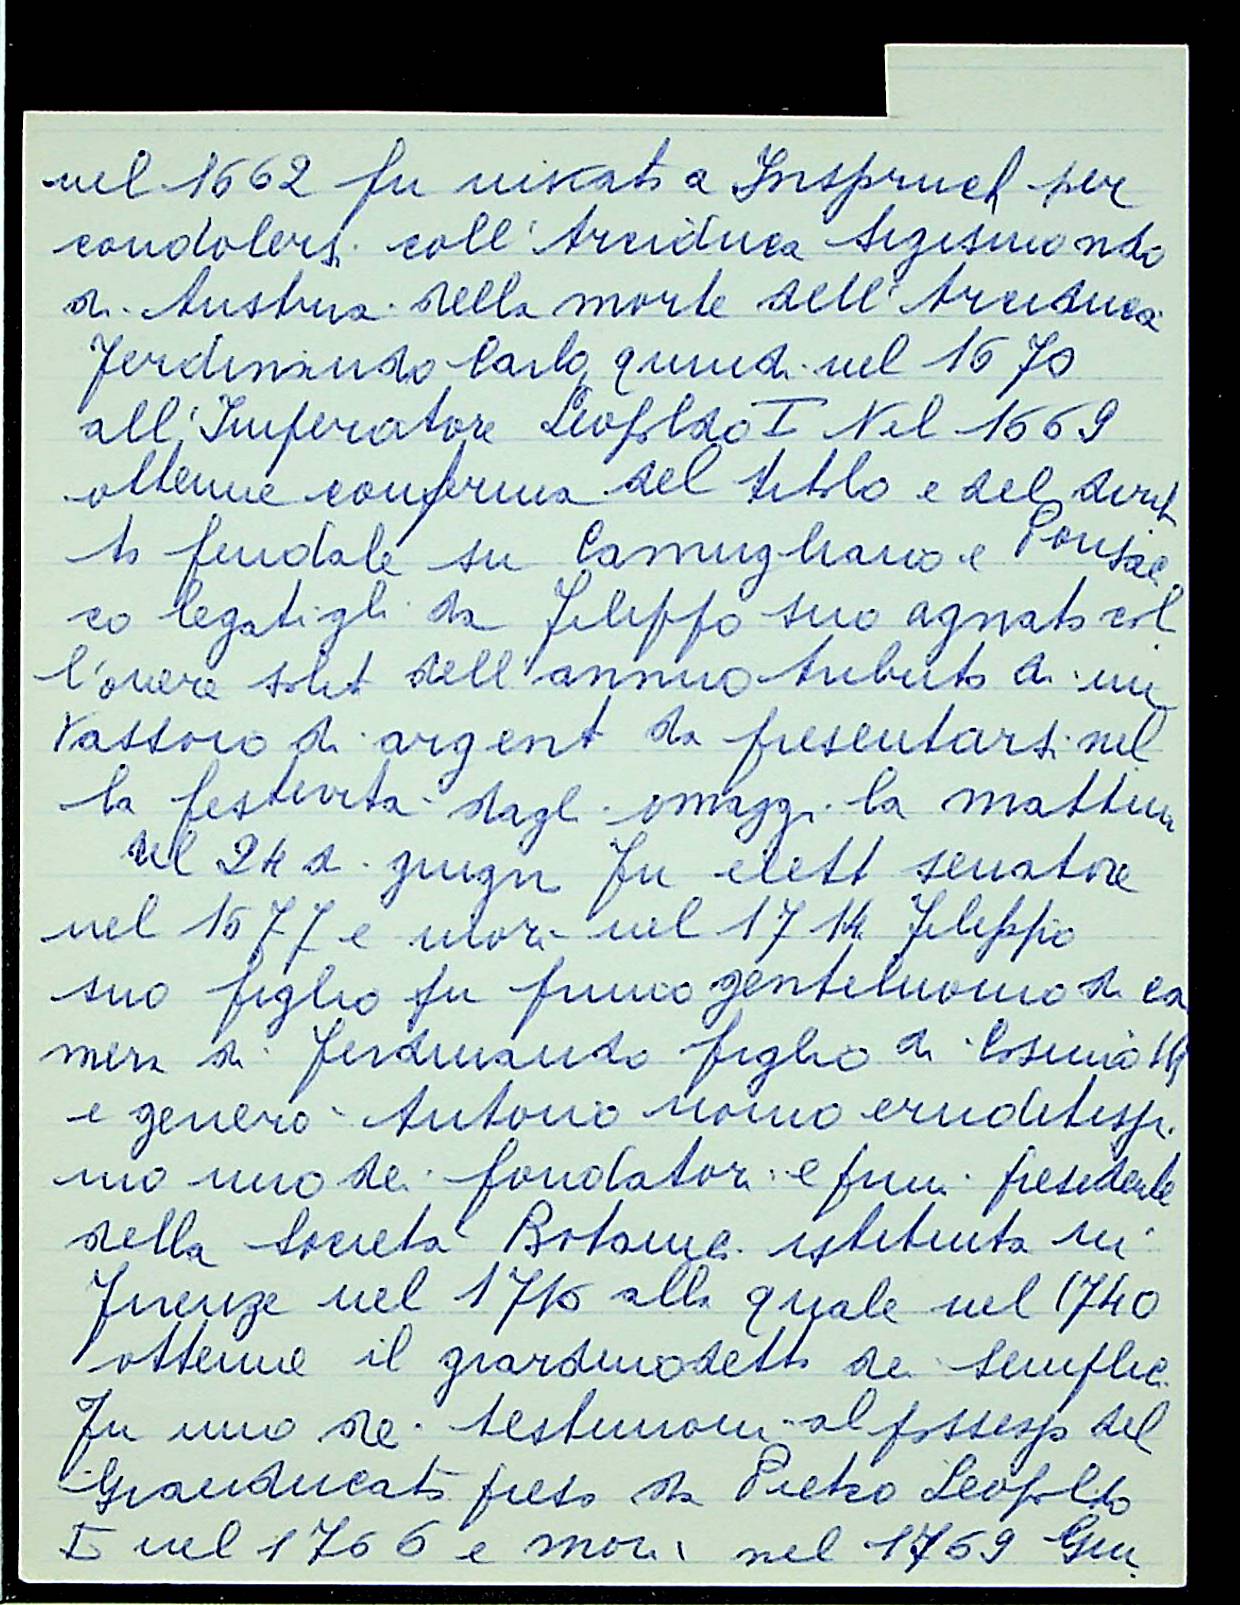 nel 1662 fu inviato a Inspruch per
condolersi coll'Arciduca Sigismondo
di Austria della morte dell'Arciduca
Ferdinando Carlo, quindi nel 1670
all'Imperatore Leopoldo I Nel 1669
ottenne conferma del titolo e del dirit
to feudale su Camugliano e Ponsac
co legatigli da Filippo suo agnato col
l'onere solit dell'annuo tributo di un
vassoio di argent da presentarsi nel
la festività dagli omaggi la mattina
del 24 di giugn Fu elett senatore
nel 1677 e morì nel 1714 Filippo
suo figlio fu primo gentiluomo di ca
mera di Ferdinando figlio di Cosimo III
e generò Antonio uomo eruditissi
mo uno dei fondatori e primi presidente
della Società Botanica istituita in
Firenze nel 1716 alla quale nel 1740
ottenne il giardino detto dei Semplici
Fu uno dei testimoni al possesso del
Granducato preso da Pietro Leopoldo
I nel 1766 e morì nel 1769 Giu